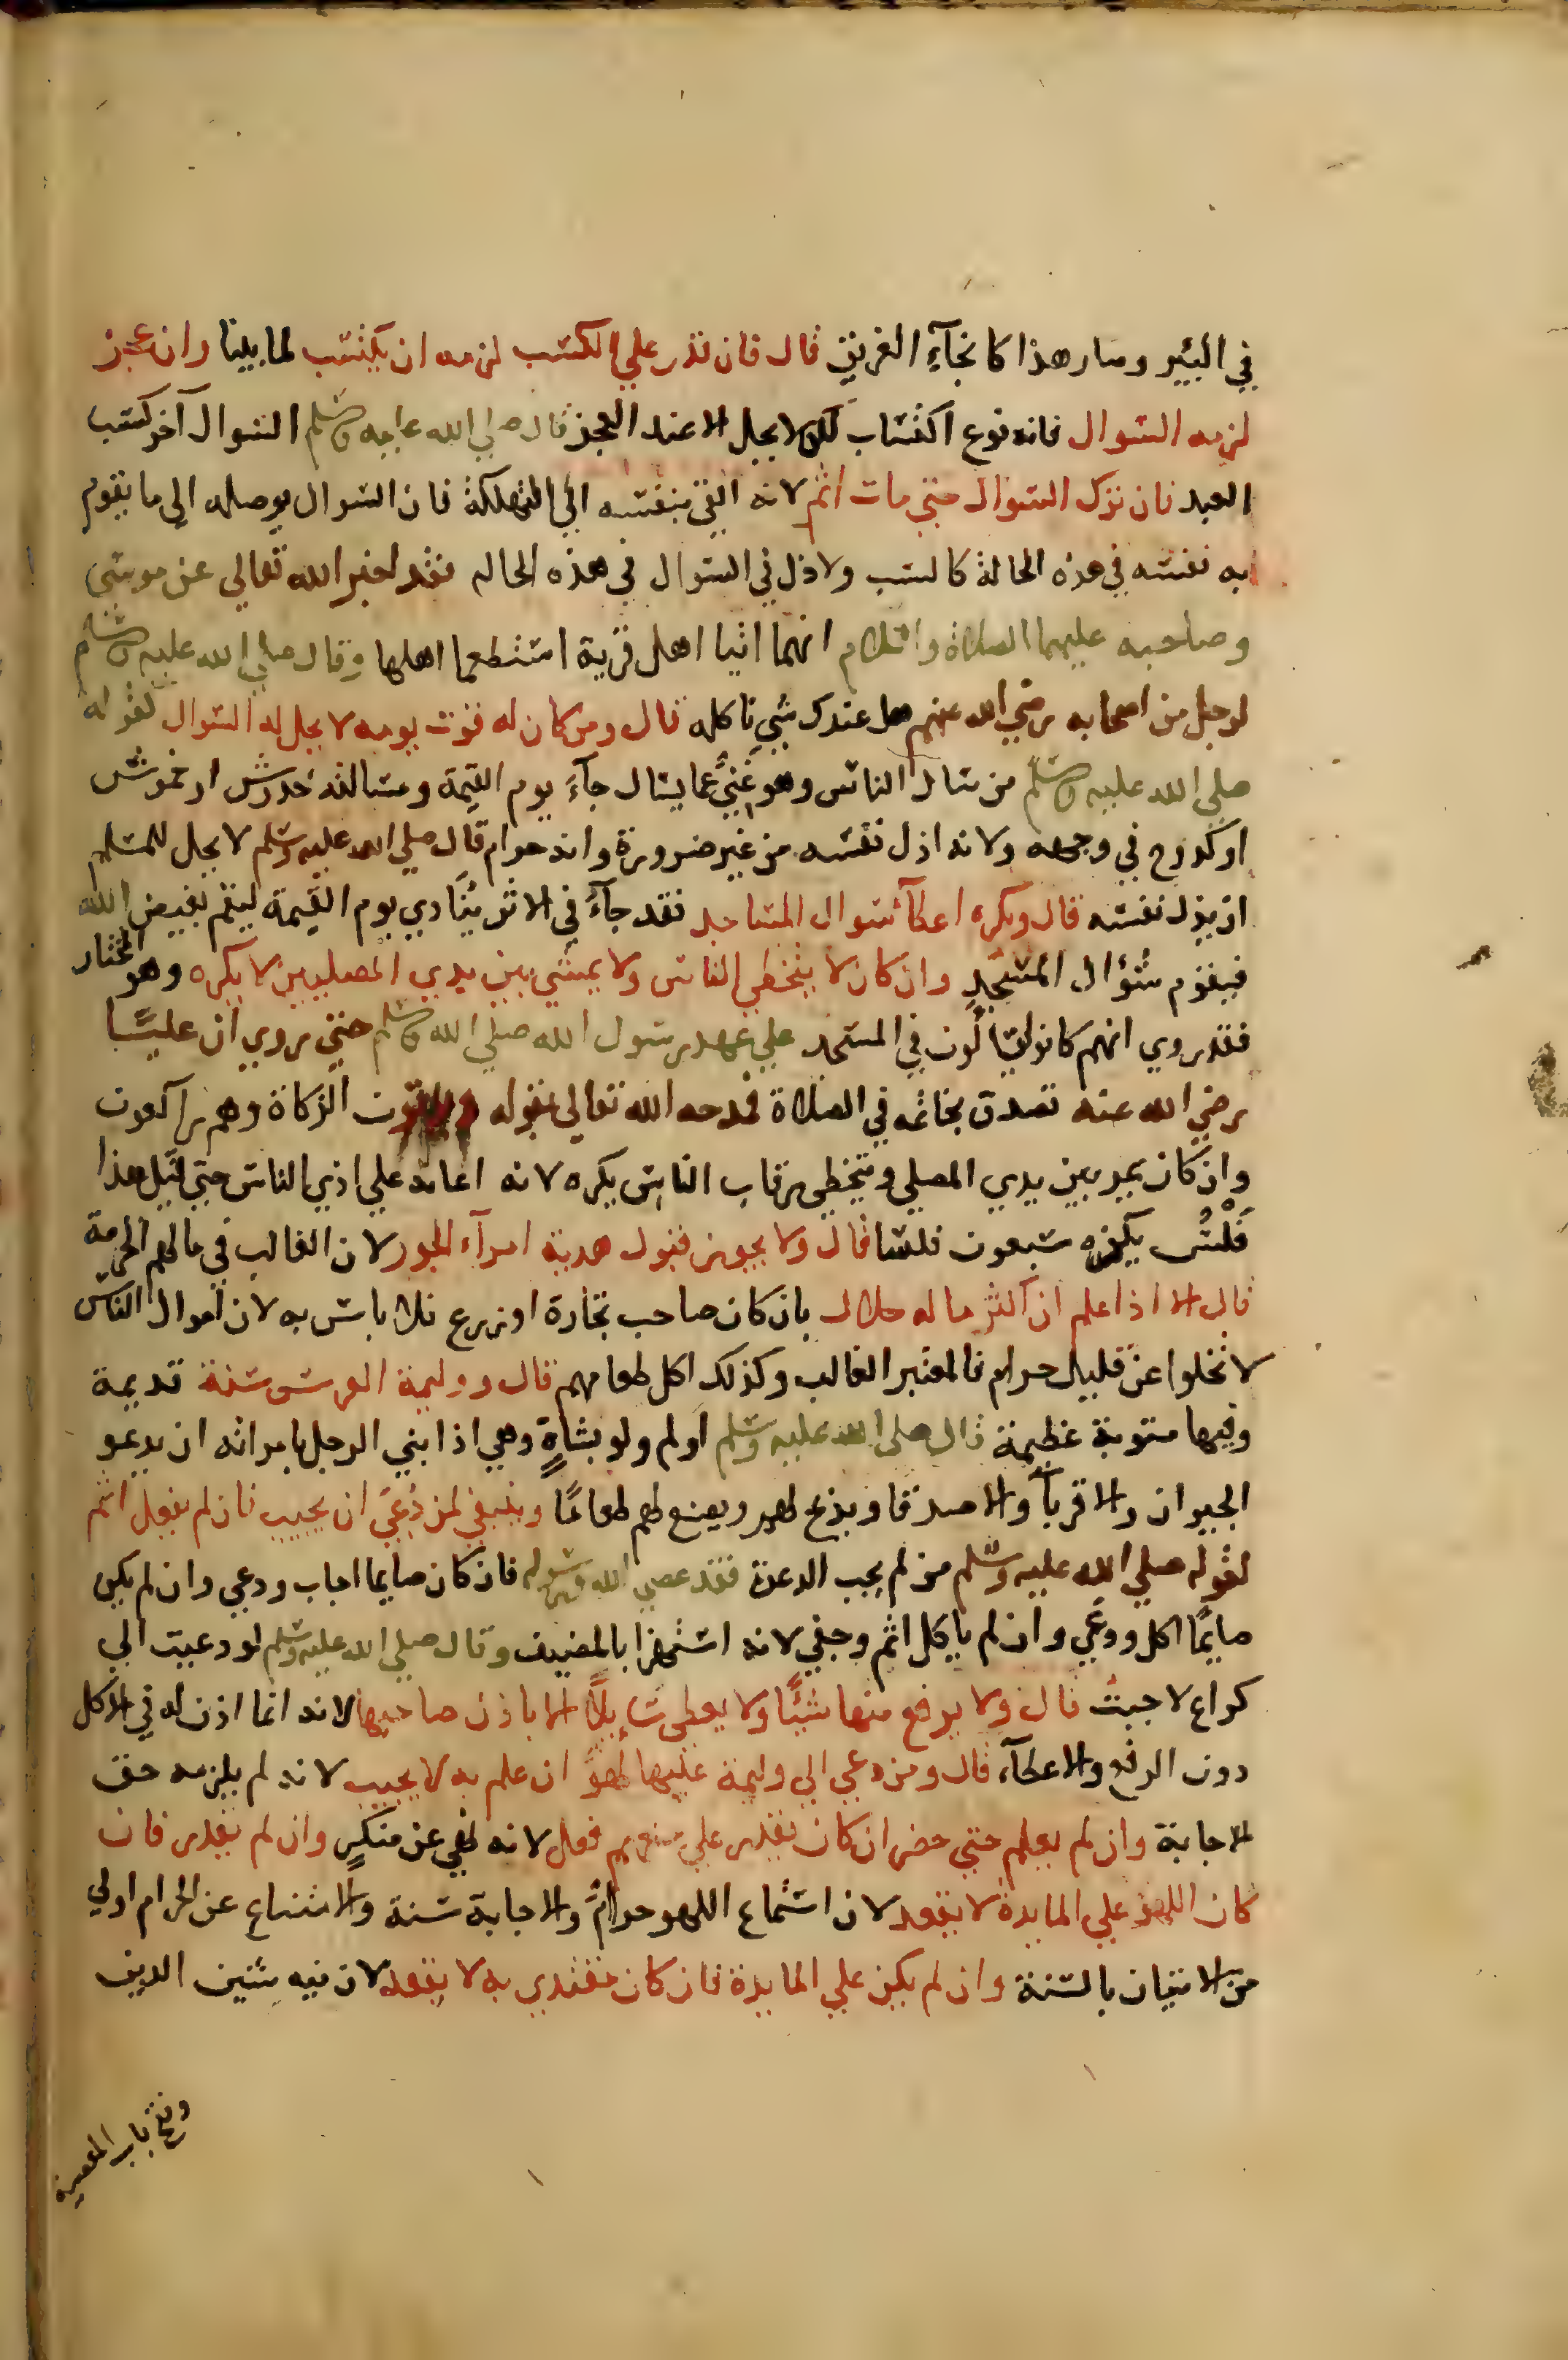 في البير وصار هذا كانجآءِ الغريق قال فان قدر علي الكسب لزمه ان يكتسب لما بينا وان عجز
لزمه السوال فانه نوع اكتساب لكن لا يحل الا عند العجز قال صلي الله عليه وسلم السوال آخر كسب
العبد فان ترك السوال حتي مات اثم لانه القي بنفسه الي التهلكة فان السوال يوصله الي ما يقوم
به نفسه في هذه الحالة كالكسب ولا ذل في السوال في هذه الحاله فقد اخبر الله تعالي عن موسي
وصاحبه عليهما الصلاة والسلام انهما اتيا اهل قرية استطعما اهلها وقال صلي الله عليه وسلم
لرجل من اصحابه رضي الله عنهم هل عندك شيء ناكله قال ومن كان له قوت يومه لا يحل له السوال لقوله
صلي الله عليه وسلم من سال الناس وهو غنيٌّ عما يسال جآءَ يوم القيمة ومسالته خدوش او خموش
او كدوح في وجهه ولانه اذل نفسه من غير ضرورة وانه حرام قال صلي الله عليه وسلم لا يحل للمسلم
ان يذل نفسه قال ويكره اعطآ سوال المساجد فقد جآءَ في الاثر يُنَادي يوم القيمة ليقم بغيض الله
فيقوم سُؤال المسجدِ وان كان لا يتخطي الناس ولا يمشي بين يدي المصليين لا يكره وهو المختار
فقد روي انهم كانوا يسالون في المسجد علي عهد رسول الله صلي الله وسلم حتي روي ان عليًّا
رضي الله عنه تصدق بخاتمه في الصلاة فمدحه الله تعالي بقوله ويوتون الزكاة وهم راكعون
وان كان يمر بين يدي المصلي ويتخطي رقاب الناس يكره لانه اعانة علي اذي الناس حتي قيل هذا
فَلْسٌ يكفره سبعون فلسا قال ولا يجوز قبول هدية امرآء الجور لان الغالب في مالهم الحرمة
قال الا اذا علم ان اكثر ماله حلال بان كان صاحب تجارة او زرع فلا باس به لان اموال الناس
لا تخلوا عن قليل حرام فالمعتبر الغالب وكذلك اكل طعامهم قال ووليمة العرس سنة قديمة
وفيها مثوبة عظيمة قال صلى الله عليه وسلم اَولم ولو بشاةٍ وهي اذا بني الرجل بامراته ان يدعو
الجيران والاقربآ والاصدقا ويذبح لهم ويصنع لهم طعامًا وينبغي لمن دُعيَ ان يجيب فان لم يفعل اثم
لقوله صلي الله عليه وسلم من لم يجب الدعوة فقد عصي الله ورسوله فان كان صايما اجاب ودعي وان لم يكن
صايمًا اكل ودعَي وان لم ياكل اثم وجفي لانه استهزا بالمضيف وقال صلي الله عليه وسلم لو دعيت الي
كراع لاجبتُ قال ولا يرفع منها شيًّا ولا يعطي سَايلًا الا باذن صاحبها لانه انما اذن له في الاكل
دون الرفع والاعطآء قال ومن دعي الي وليمة عليها لهوٌ ان علم به لا يجيب لانه لم يلزمه حق
الاجابة وان لم يعلم حتي حضر ان كان يقدر علي منعهم فعل لانه نهي عن منكرٍ وان لم يقدر فان
كان اللهو علي المايدة لا يقعد لان استماع اللهو حرامٌ والاجابة سنة والامتناع عن الحرام اولي
من الاتيان بالسنة وان لم يكن علي المايدة فان كان مقتدي به لا يقعد لان فيه شين الدين
وفتح باب المعصية